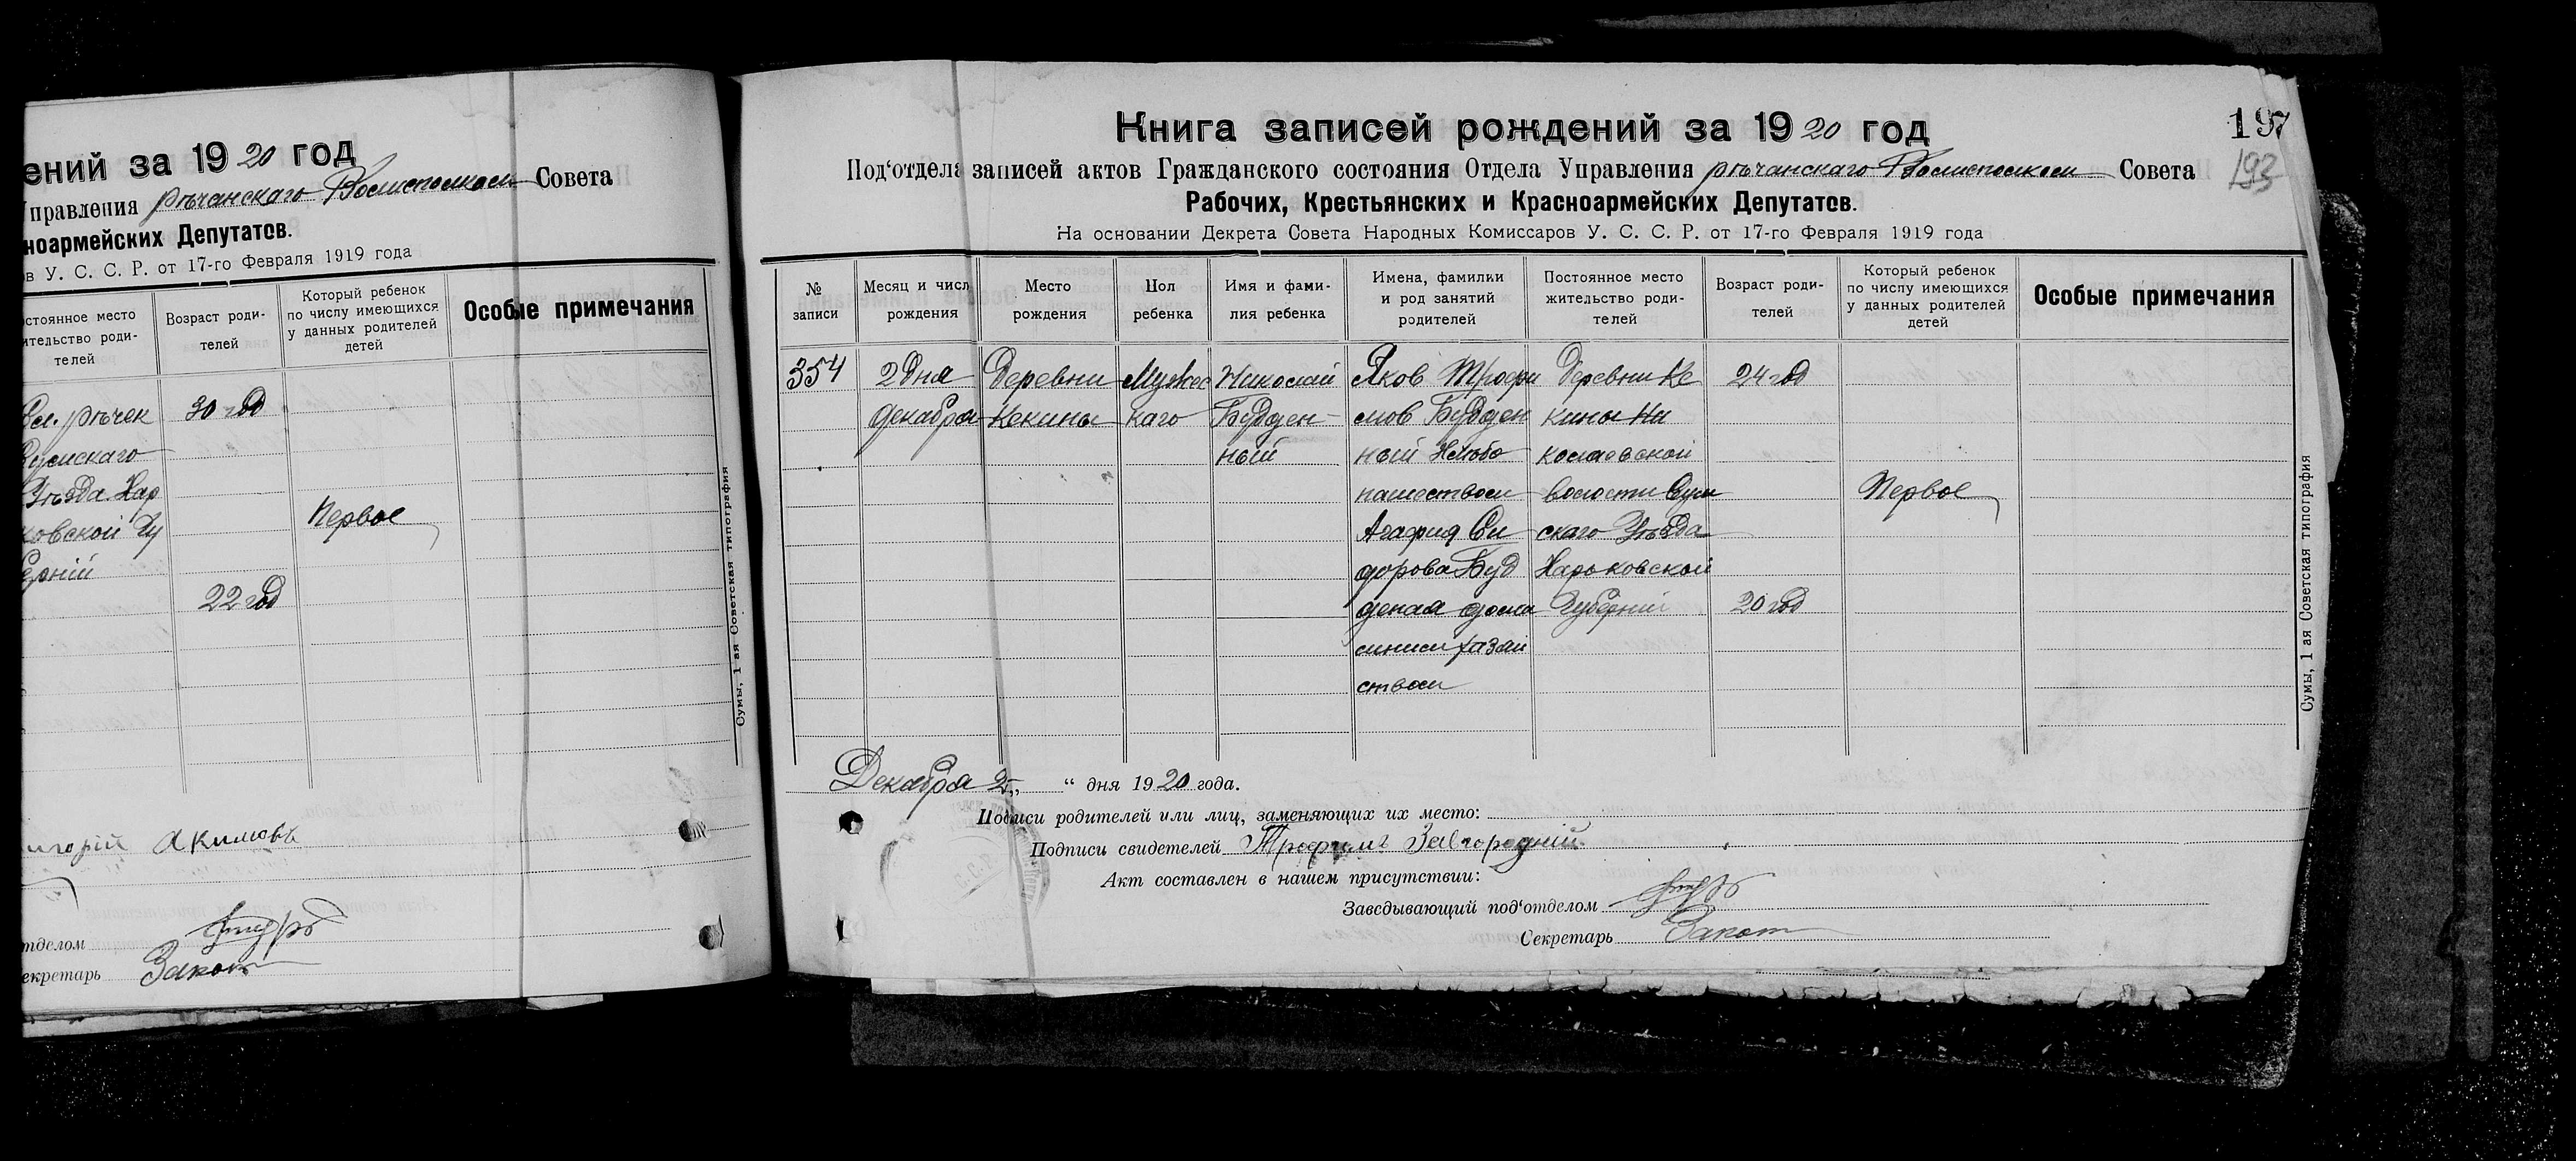 ений за 1920 год
Управления рѣчанскаго Волисполком Совета
ноармейских Депутатов.
ов У. С. С. Р. от 17-го Февраля 1919 года
остоянное место
ительство роди-
телей
Возраст роди-
телей
Который ребенок
по числу имеющихся
у данных родителей
детей
Особые примечания
Сел. рѣчек
Сумскаго
Уѣзда Хар
ковской Гу
ерніи
30 год
22 год
Первое
Сумы, 1 ая Советская типография
игорій Акимовъ
тделом
екретарь
Книга записей рождений за 1920 год
197
193
Под'отдела записей актов Гражданского состояния Отдела Управления рѣчанскаго Волисполком Совета
Рабочих, Крестьянских и Красноармейских Депутатов.
На основании Декрета Совета Народных Комиссаров У. С. С. Р. от 17-го Февраля 1919 года
№
записи
Месяц и числ
рождения
Место
рождения
Пол
ребенка
Имя и фами-
лия ребенка
Имена, фамилии
и род занятий
родителей
Постоянное место
жительство роди-
телей
Возраст роди-
телей
Который ребенок
по числу имеющихся
у данных родителей
детей
Особые примечания
354
2 дня
декабра
Деревни
Кекины
Мужес
каго
Николай
Бубден
ный
Яков Трофи
мов Бубден
ный Хлѣбо
пашеством
Агафия Си
дорова Буд
деная дома
шним хазяй
ством
Деревни Ке
кины Ни
колаевской
волости Сум
скаго Уѣзда
Харьковской
Губерніи
24 год
20 год
Первое
Сумы, 1 ая Советская типография
Декабра 2 „ “ дня 1920 года.
Подписи родителей или лиц, заменяющих их место:
Подписи свидетелей Трофимъ Завгородний
Акт составлен в нашем присутствии:
Заведывающий под'отделом
Секретарь